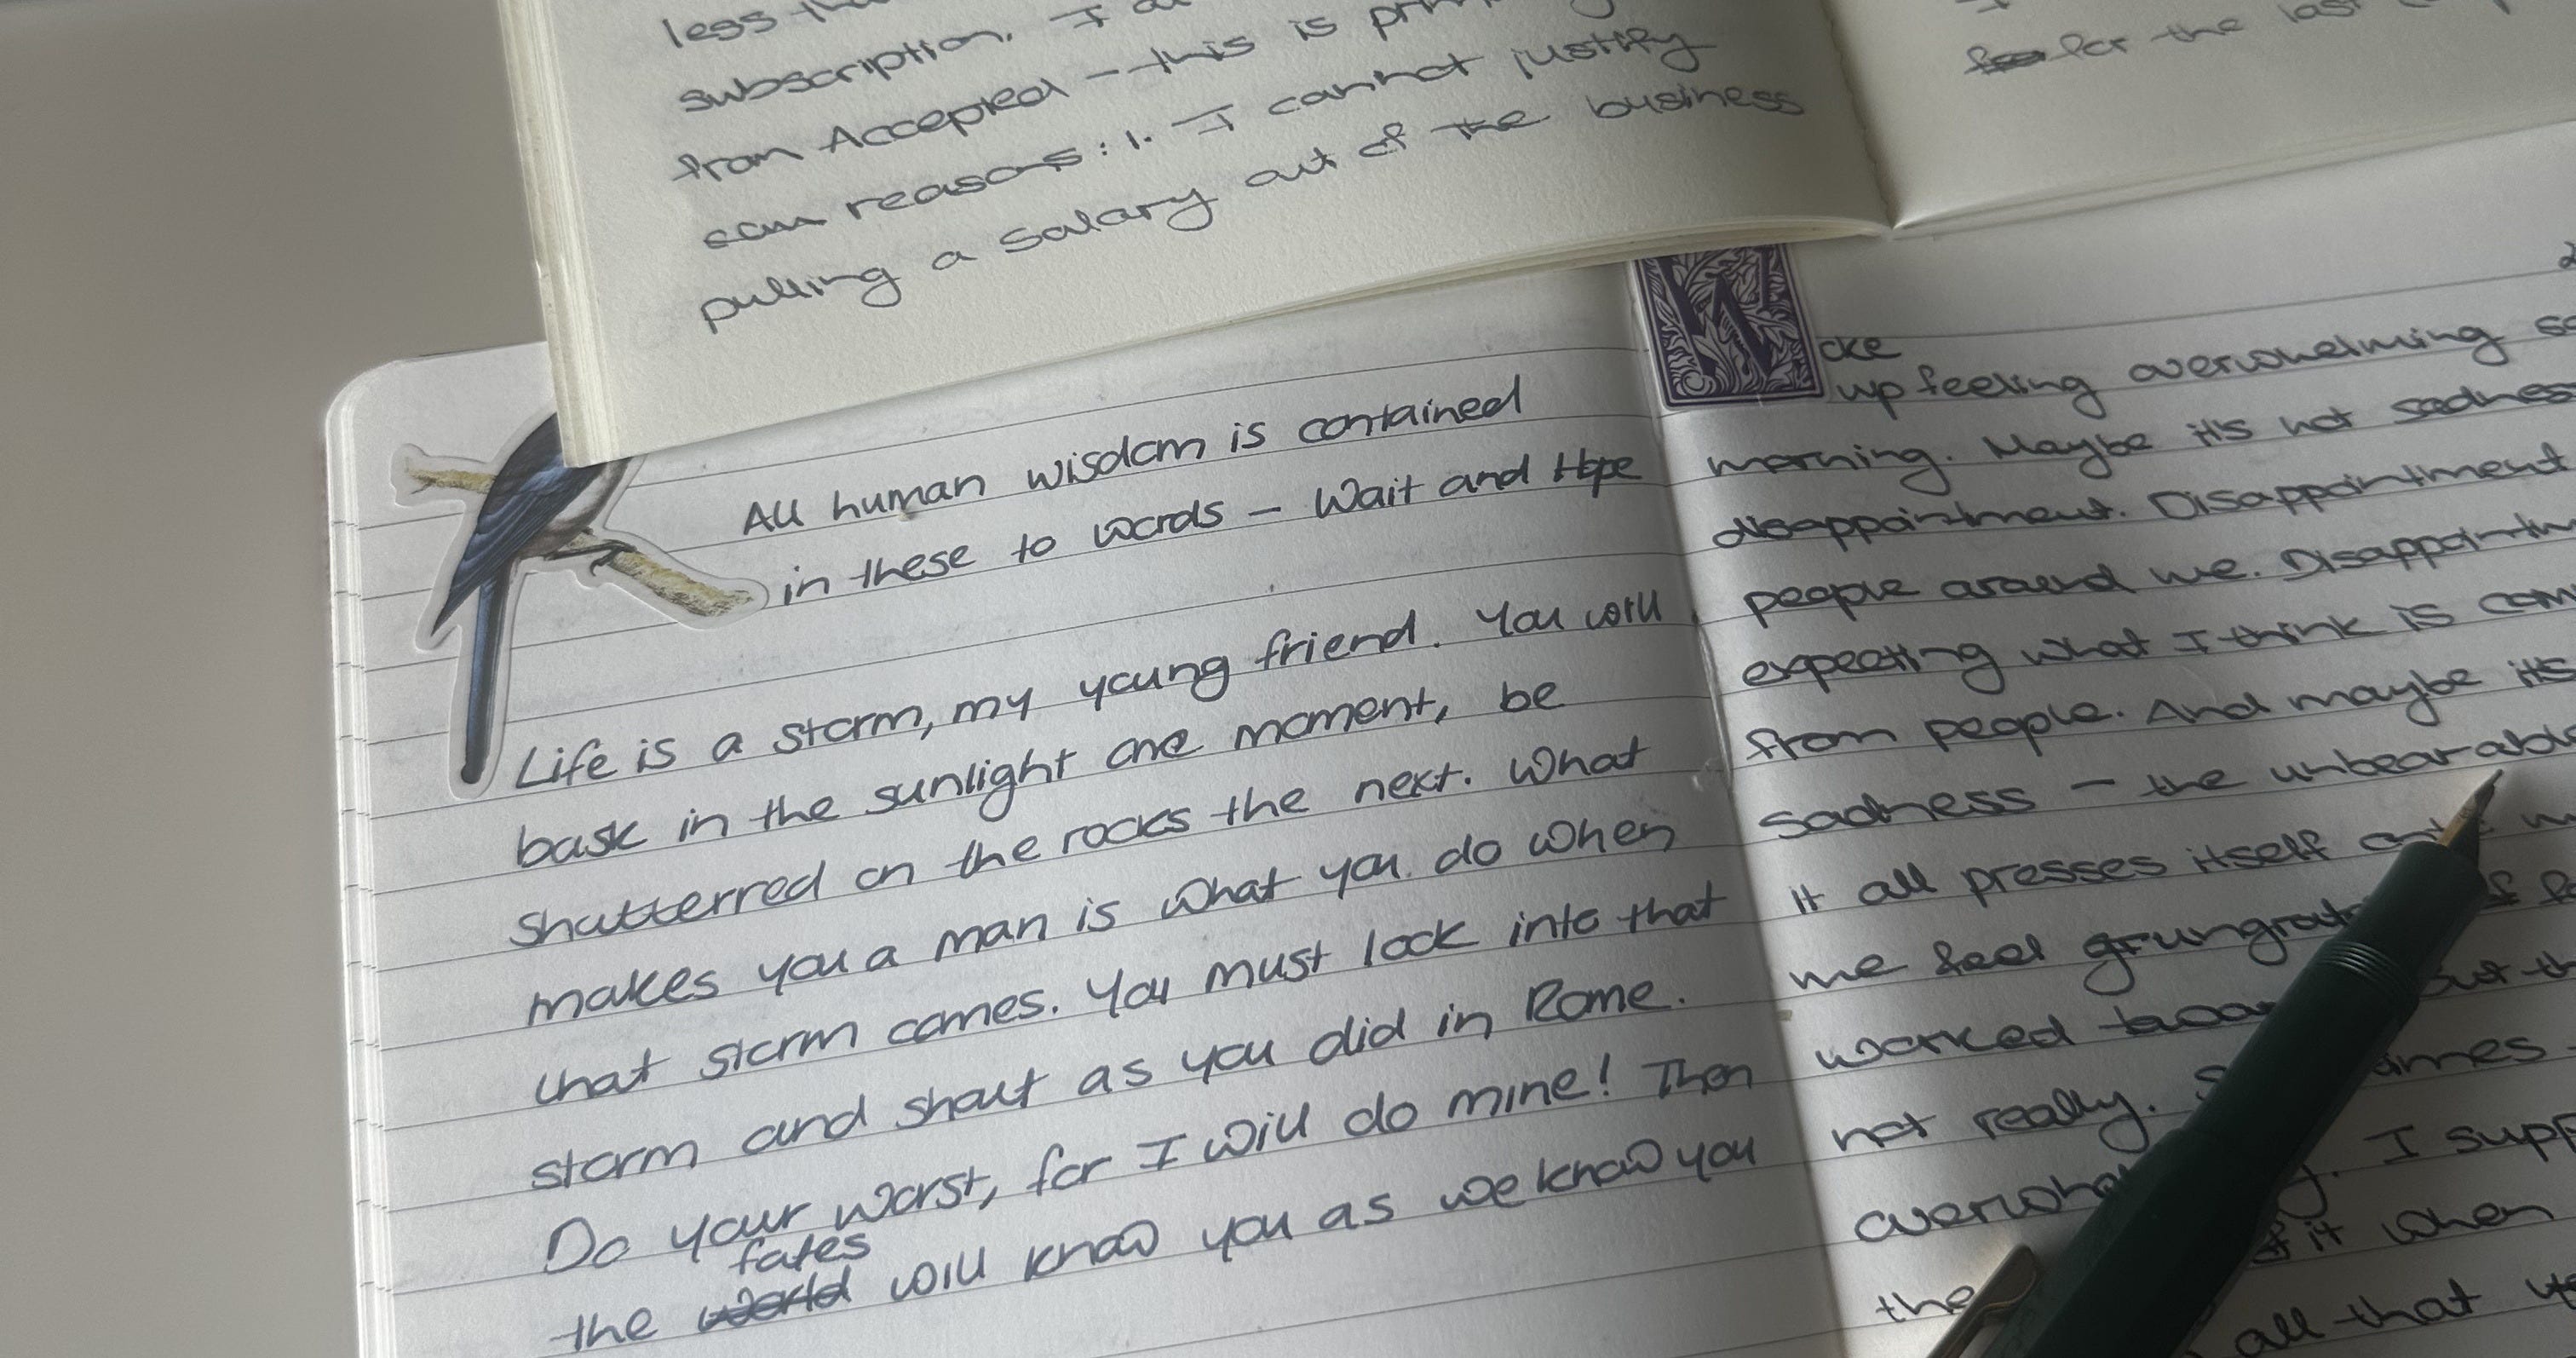 less
subscription. I
from Accepted - this is
reasons: 1. I cannot justify
pulling a salary out of the business
for the last
All human wisdom is contained
in these to words - Wait and Hope
Life is a storm, my young friend. You will
bask in the sunlight one moment, be
shutterred on the rocks the next. What
makes you a man is what you do when
that storm comes. You must look into that
storm and shout as you did in Rome.
Do your worst, for I will do mine! Then
fates
the world will know you as we know you
Woke
up feeling overwhelming
morning. Maybe it's not sadness
disappointment. Disappointment
people around me. Disappointm
expecting what I think is
from people. And maybe it's
sadness - the unbearable
it all presses itself
me feel
worked
not really.
I supp
the it when
all that